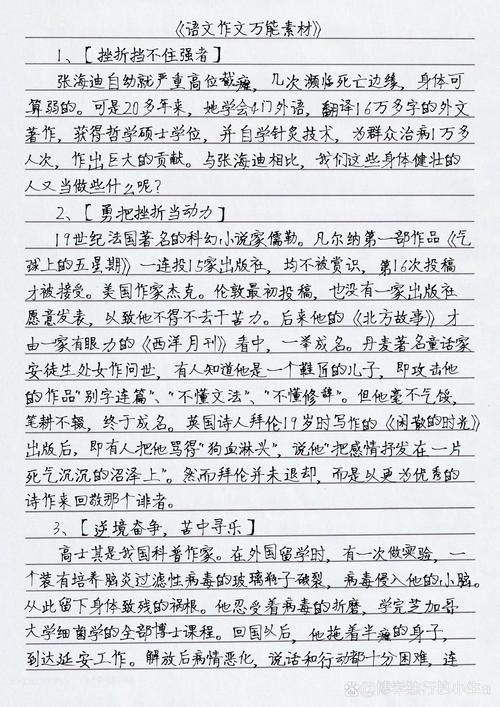 《语文作文万能素材》
1、【挫折挡不住强者】
张海迪自幼就严重高位截瘫,几次濒临死亡边缘,身体可
算弱的。可是20多年来,她学会4门外语,翻译16万多字的外文
著作,获得哲学硕士学位,并自学针灸技术,为群众治病1万多
人次,作出巨大的贡献。与张海迪相比,我们这些身体健壮的
人又当做些什么呢?
2、【勇把挫折当动力】
19世纪法国著名的科幻小说家儒勒。凡尔纳第一部作品《气
球上的五星期》一连投15家出版社,均不被赏识,第16次投稿
才被接受。美国作家杰克。伦敦最初投稿,也没有一家出版社
愿意发表,以致他不得不去干苦力。后来他的《北方故事》才
由一家有眼力的《西洋月刊》看中,一举成名。丹麦著名童话家
安徒生处女作问世,有人知道他是一个鞋匠的儿子,即攻击他
的作品"别字连篇"、"不懂文法"、"不懂修辞"。但他毫不气馁,
笔耕不辍,终于成名。英国诗人拜伦19岁时写作的《闲散的时光》
出版后,即有人把他骂得"狗血淋头",说他"把感情抒发在一片
死气沉沉的沼泽上"。然而拜伦并未退却,而是以更为优秀的
诗作来回敬那个诽者。
3、【逆境奋争,苦中寻乐】
高士其是我国科普作家。在外国留学时,有一次做实验,一
个装有培养脑炎过滤性病毒的玻璃瓶子破裂,病毒侵入他的小脑。
从此留下身体致残的祸根。他忍受着病毒的折磨,学完芝加哥
大学细菌学的全部博士课程。回国以后,他拖着半瘫的身子,
到达延安工作。解放后病情恶化,说话和行动都十分困难,连